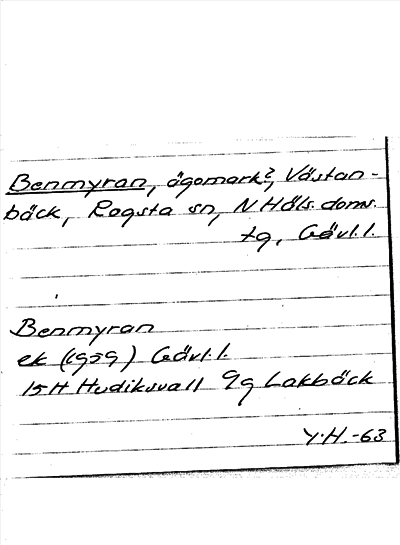 Benmyran, ägomark?, Västan-
bäck, Rogsta sn, N Häls. doms.
tg, Gävl.l.
Benmyran
ek (1959) Gävl.l.
15H Hudiksvall 9g Lakbäck
Y.H.-63